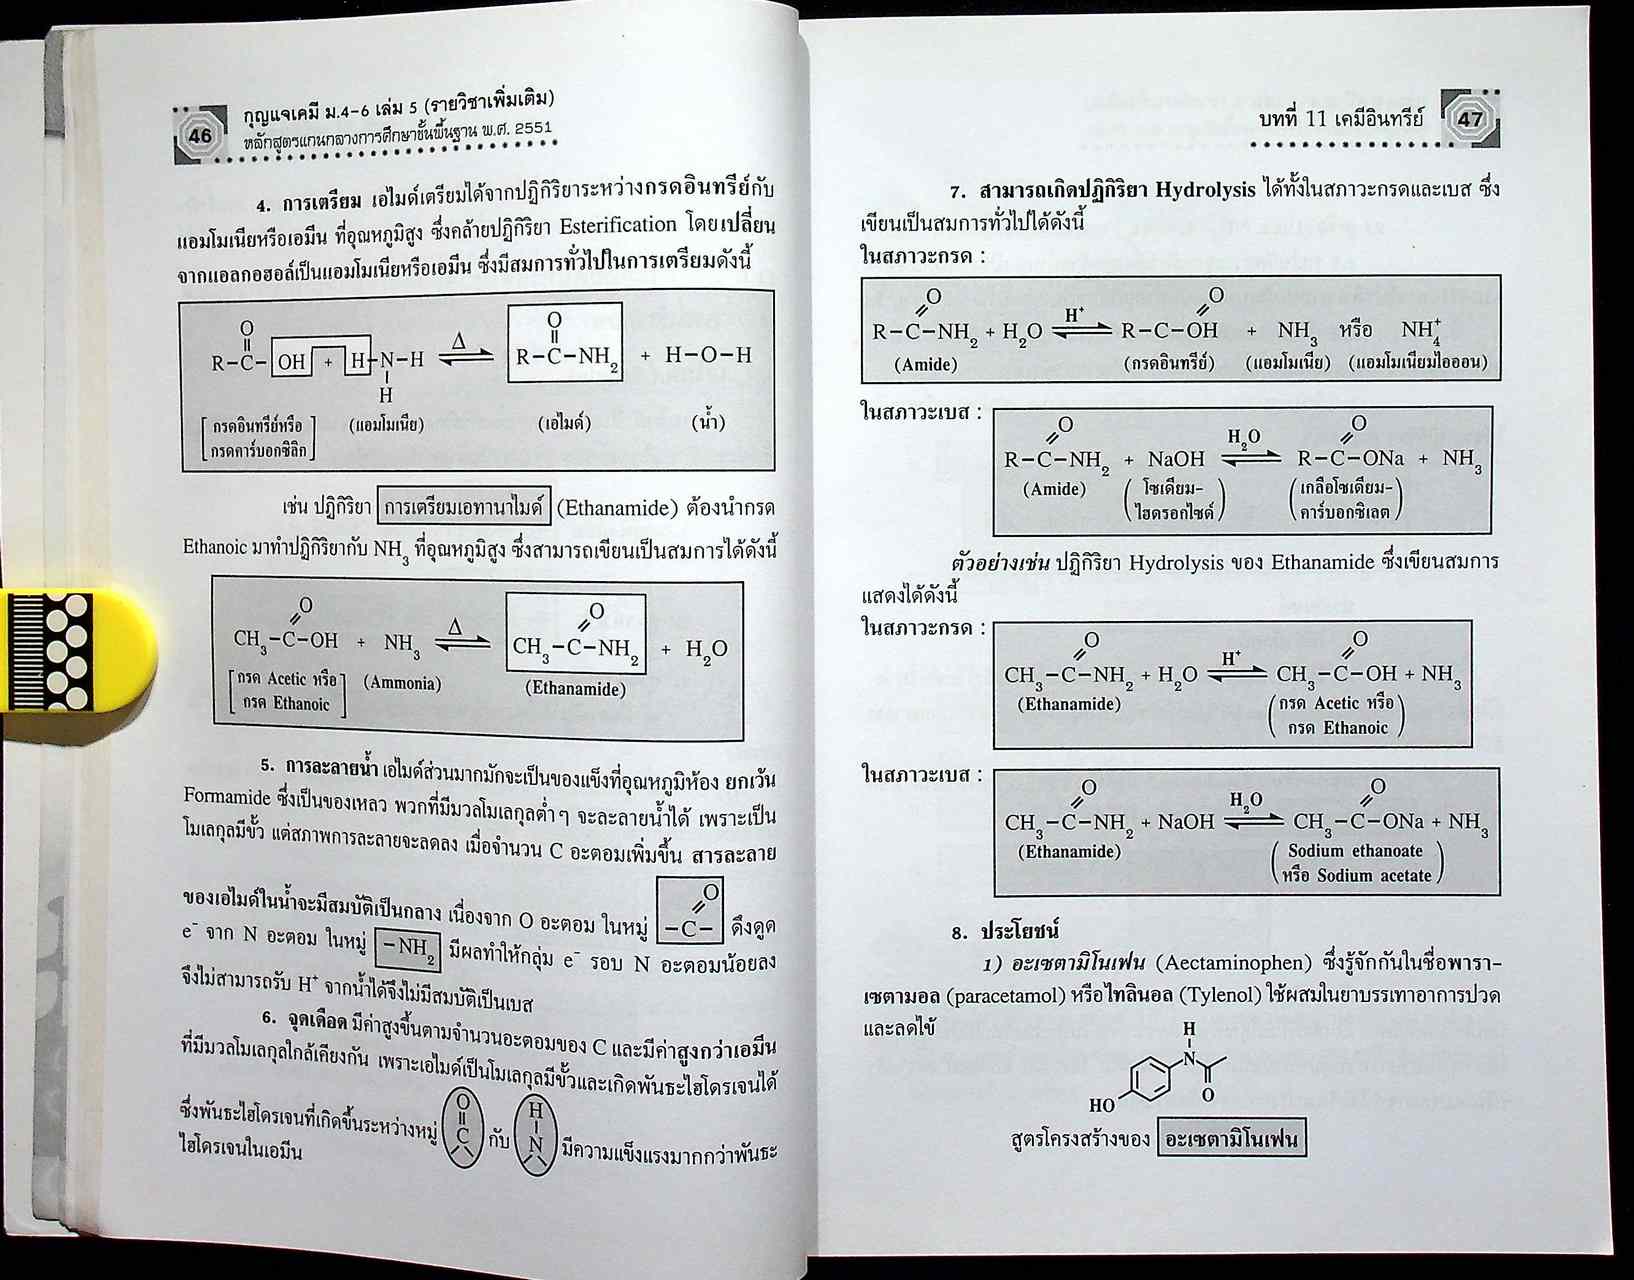 46
กุญแจเคมี ม.4-6 เล่ม 5 (รายวิชาเพิ่มเติม)
หลักสูตรแกนกลางการศึกษาขั้นพื้นฐาน พ.ศ. 2551
4. การเตรียม เอไมด์เตรียมได้จากปฏิกิริยาระหว่างกรดอินทรีย์กับ
แอมโมเนียหรือเอมีน ที่อุณหภูมิสูง ซึ่งคล้ายปฏิกิริยา Esterification โดยเปลี่ยน
จากแอลกอฮอล์เป็นแอมโมเนียหรือเอมีน ซึ่งมีสมการทั่วไปในการเตรียมดังนี้
O O
R–C– OH + H–N–H Δ ⇌ R–C–NH₂ + H–O–H
H
[กรดอินทรีย์หรือ (แอมโมเนีย) (เอไมด์) (น้ำ)
กรดคาร์บอกซิลิก]
เช่น ปฏิกิริยา การเตรียมเอทานาไมด์ (Ethanamide) ต้องนำกรด
Ethanoic มาทำปฏิกิริยากับ NH₃ ที่อุณหภูมิสูง ซึ่งสามารถเขียนเป็นสมการได้ดังนี้
O O
CH₃–C–OH + NH₃ Δ ⇌ CH₃–C–NH₂ + H₂O
[กรด Acetic หรือ (Ammonia) (Ethanamide)
กรด Ethanoic]
5. การละลายน้ำ เอไมด์ส่วนมากมักจะเป็นของแข็งที่อุณหภูมิห้อง ยกเว้น
Formamide ซึ่งเป็นของเหลว พวกที่มีมวลโมเลกุลต่ำๆ จะละลายน้ำได้ เพราะเป็น
โมเลกุลมีขั้ว แต่สภาพการละลายจะลดลง เมื่อจำนวน C อะตอมเพิ่มขึ้น สารละลาย
O
ของเอไมด์ในน้ำจะมีสมบัติเป็นกลาง เนื่องจาก O อะตอม ในหมู่ –C– ดึงดูด
e⁻ จาก N อะตอม ในหมู่ –NH₂ มีผลทำให้กลุ่ม e⁻ รอบ N อะตอมน้อยลง
จึงไม่สามารถรับ H⁺ จากน้ำได้จึงไม่มีสมบัติเป็นเบส
6. จุดเดือด มีค่าสูงขึ้นตามจำนวนอะตอมของ C และมีค่าสูงกว่าเอมีน
ที่มีมวลโมเลกุลใกล้เคียงกัน เพราะเอไมด์เป็นโมเลกุลมีขั้วและเกิดพันธะไฮโดรเจนได้
O H
ซึ่งพันธะไฮโดรเจนที่เกิดขึ้นระหว่างหมู่ C กับ N มีความแข็งแรงมากกว่าพันธะ
ไฮโดรเจนในเอมีน
บทที่ 11 เคมีอินทรีย์ 47
7. สามารถเกิดปฏิกิริยา Hydrolysis ได้ทั้งในสภาวะกรดและเบส ซึ่ง
เขียนเป็นสมการทั่วไปได้ดังนี้
ในสภาวะกรด :
O O
R–C–NH₂ + H₂O H⁺ ⇌ R–C–OH + NH₃ หรือ NH₄⁺
(Amide) (กรดอินทรีย์) (แอมโมเนีย) (แอมโมเนียมไอออน)
ในสภาวะเบส :
O O
R–C–NH₂ + NaOH H₂O ⇌ R–C–ONa + NH₃
(Amide) (โซเดียม- (เกลือโซเดียม-
ไฮดรอกไซด์) คาร์บอกซิเลต)
ตัวอย่างเช่น ปฏิกิริยา Hydrolysis ของ Ethanamide ซึ่งเขียนสมการ
แสดงได้ดังนี้
ในสภาวะกรด :
O O
CH₃–C–NH₂ + H₂O H⁺ ⇌ CH₃–C–OH + NH₃
(Ethanamide) (กรด Acetic หรือ
กรด Ethanoic)
ในสภาวะเบส :
O O
CH₃–C–NH₂ + NaOH H₂O ⇌ CH₃–C–ONa + NH₃
(Ethanamide) (Sodium ethanoate
หรือ Sodium acetate)
8. ประโยชน์
1) อะเซตามิโนเฟน (Aectaminophen) ซึ่งรู้จักกันในชื่อพารา-
เซตามอล (paracetamol) หรือไทลินอล (Tylenol) ใช้ผสมในยาบรรเทาอาการปวด
และลดไข้
H
N
HO O
สูตรโครงสร้างของ อะเซตามิโนเฟน